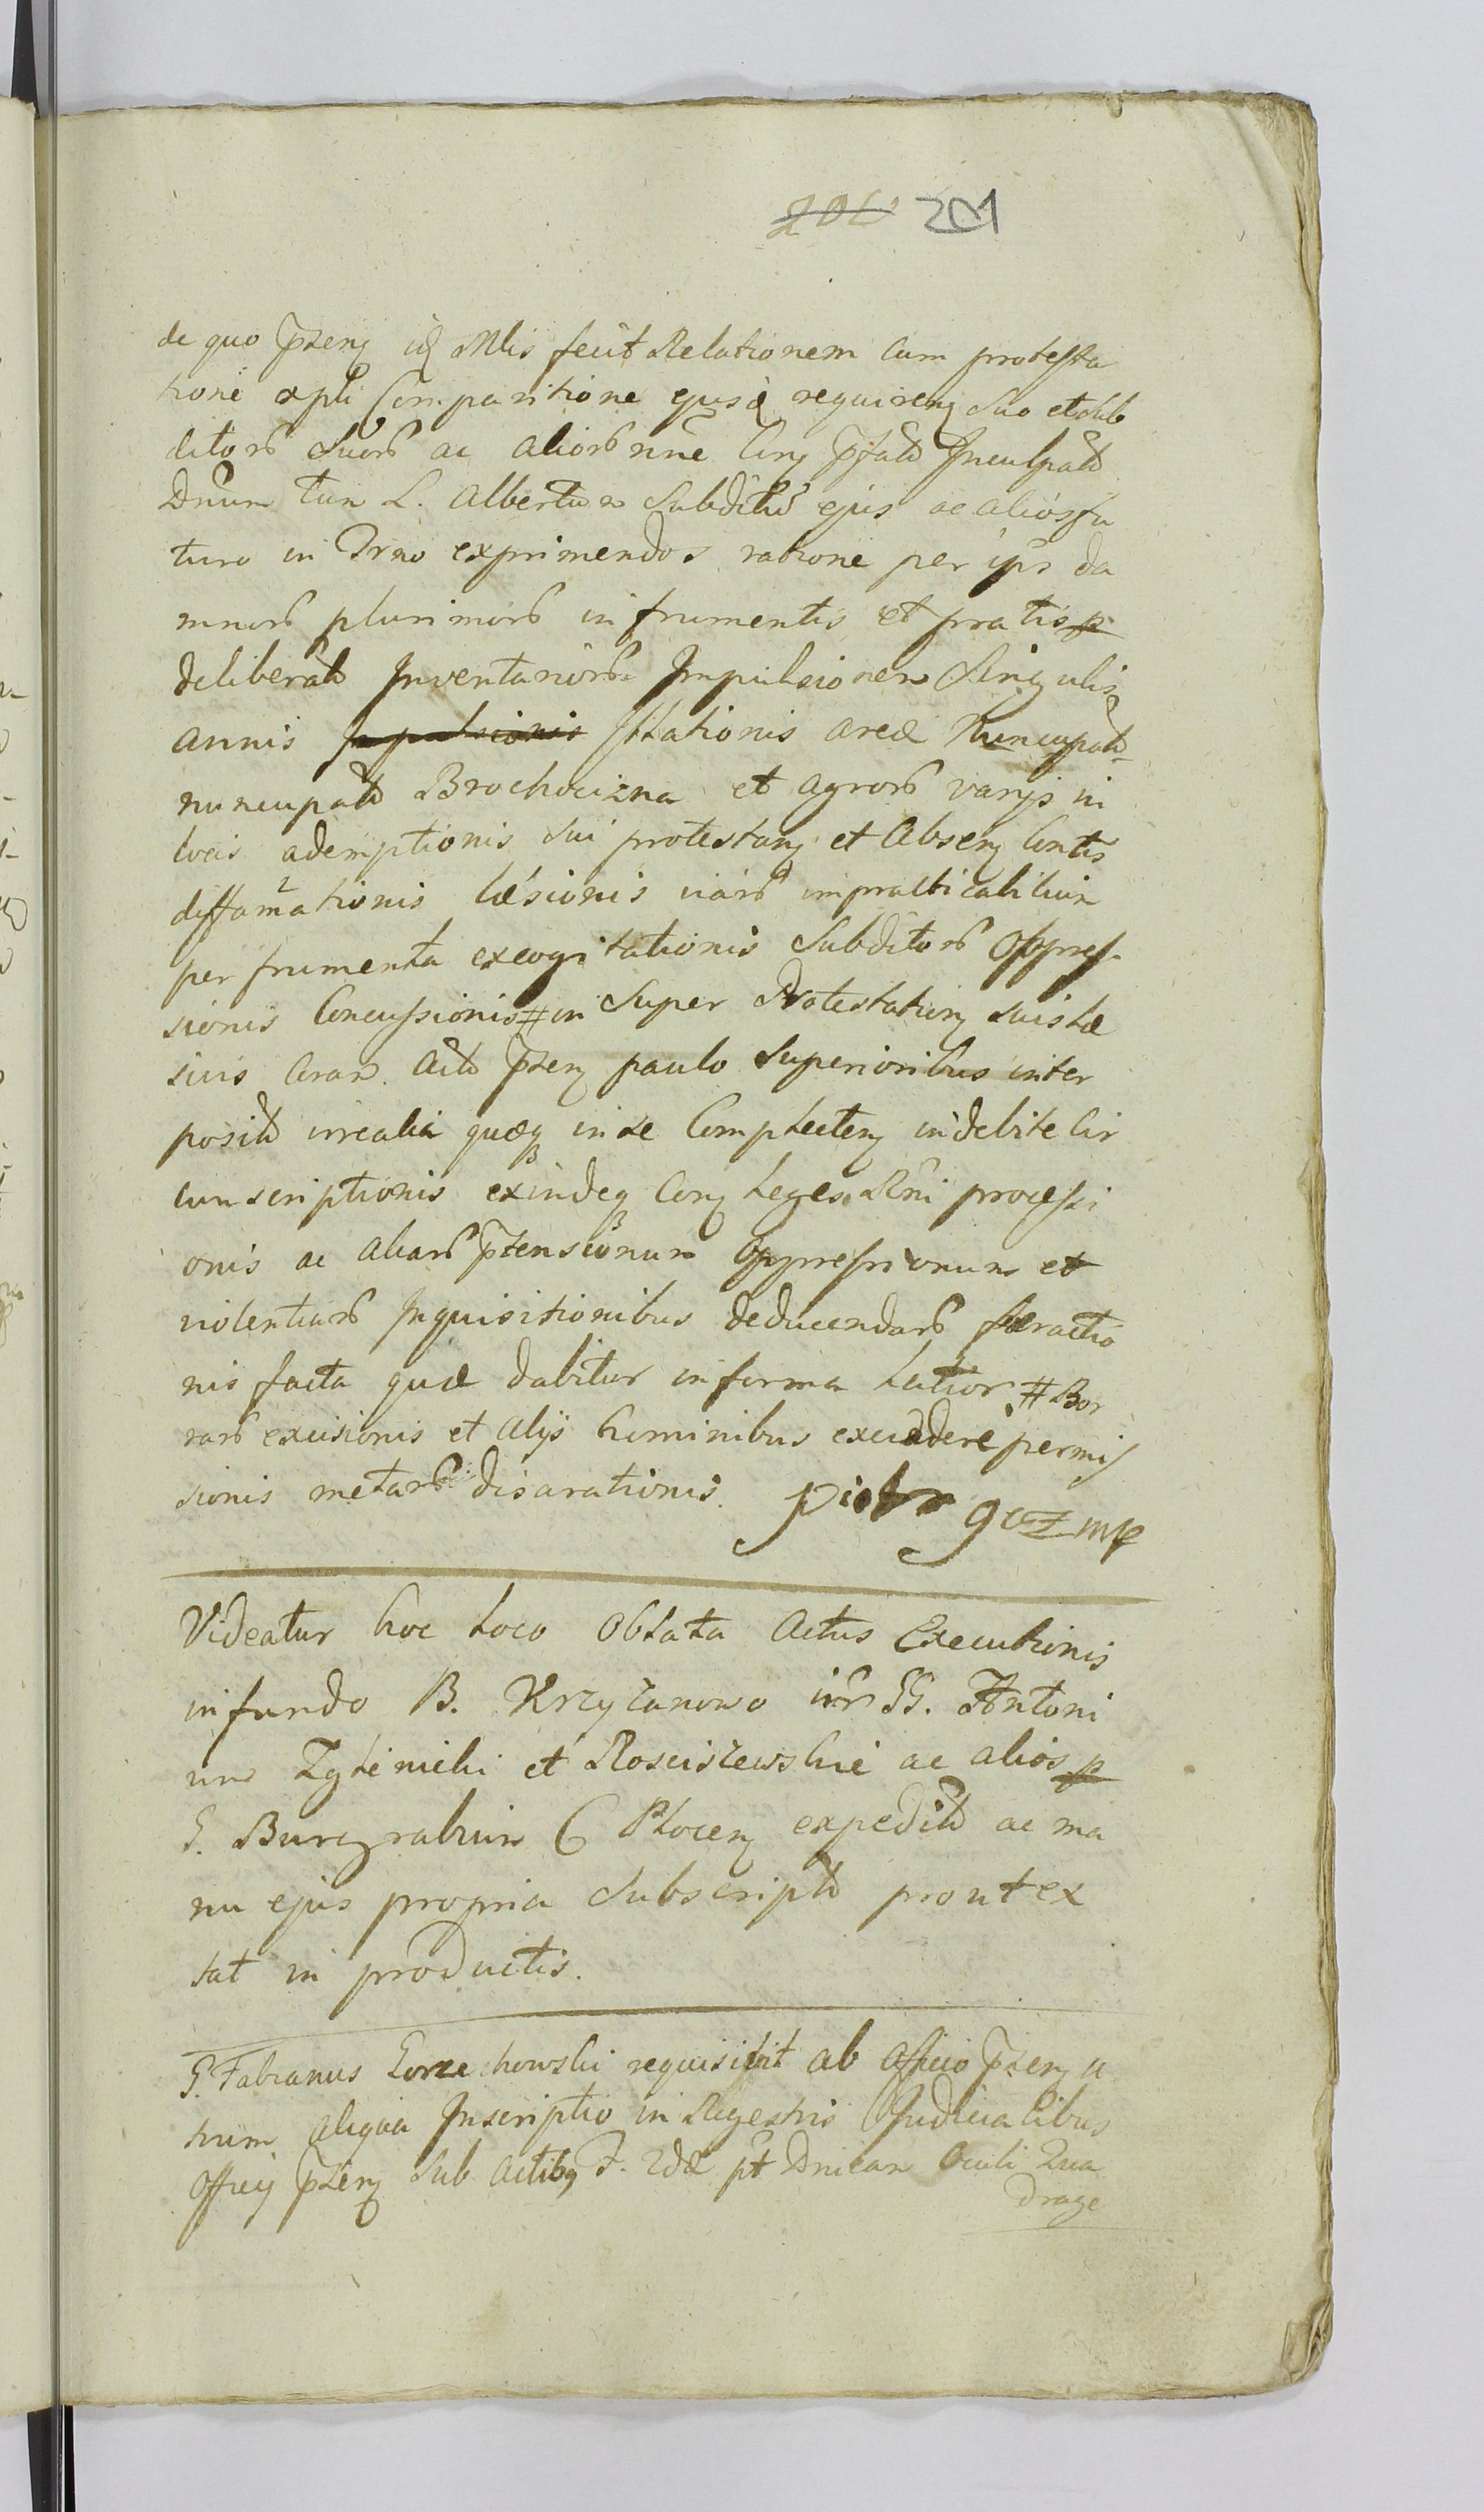 201
de quo pzens id Mlis fecit Relationem cum protesta
tione xpli Comparitione ejusd requirens suo et sub
ditorb suorb ac aliorb nne Cong pfatu Inculpatu
Dnum tum L. Albertum subditu ejus ac alios fu
turo in Trno exprimendos ratione per ips da
mnorb plurimorb in frumentis et pratis p
deliberatu Inventariorb Impulsionem singulis
annis Impulsionis sttationis areæ Nuncupatu
nuncupatu Brochocizna et agrorb varys in
locis ademptionis sui protestans et absens Contis
diffamationis læsionis viarb impracticabilium
per frumenta excogitationis subditorb oppres
sionis Concussionis # in super Protestations suis læ
sivis Coram Actu pzens paulo superioribus inter
posita irrealia quæq in se Complectens indebite Cir
cumscriptionis exindeq Cong Leges Rni processi
onis ac aliarb pztensionum oppressionum et
violentiarb Inquisitionibus deducendarb peractio
nis facta quæ dabitur in forma Latior # Bor
rarb excisionis et alys hominibus excidere permis
sionis metarb disarationis. Piotr goz mp
Videatur hoc loco oblata Actus Executionis
in fundo B. Krzyżanowo intr GG. Antoni
um Zglenicki et Rosciszewskie ac alios p
G. Burgrabium C Plocens expeditu ac ma
nu ejus propria subscriptu prout ex
tat in productis.
G. Fabianus Gorzechowski requisivit ab officio pzens u
trum aliqua Inscriptio in Regestris Judicialibus
officy pzens sub actibq F. 2dæ pt Dnicam Oculi Qua
drage